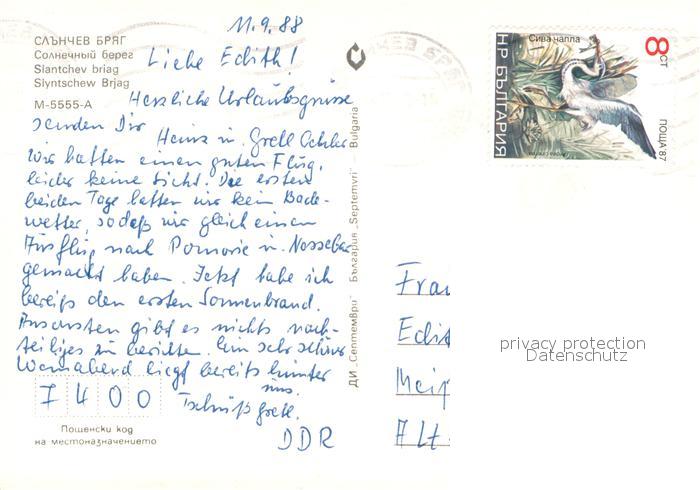 СЛЪНЧЕВ БРЯГ
Солнечный берег
Slantchev briag
Slyntschew Brjag
М-5555-А
11.9.88
Liebe Edith!
Herzliche Urlaubsgrüsse
senden Dir
Heinz u. Grett
Wir hatten einen guten Flug,
leider keine Sicht. Die ersten
beiden Tage hatten wir kein Bade-
wetter, sodaß wir gleich einen
Ausflug nach Pomorie u. Nessebar
gemacht haben. Jetzt habe ich
bereits den ersten Sonnenbrand.
Ansonsten gibt es nichts nach-
teiliges zu berichten. Ein sehr schöner
Weinabend liegt bereits hinter
uns.
Tschüß Grett.
7400
DDR
Пощенски код
на местоназначението
ДИ „Септември" България „Septemvri" — Bulgaria
Сива чапла
8 СТ
НР БЪЛГАРИЯ
ПОЩА 87
Frau
Edit
Alt
privacy protection
Datenschutz